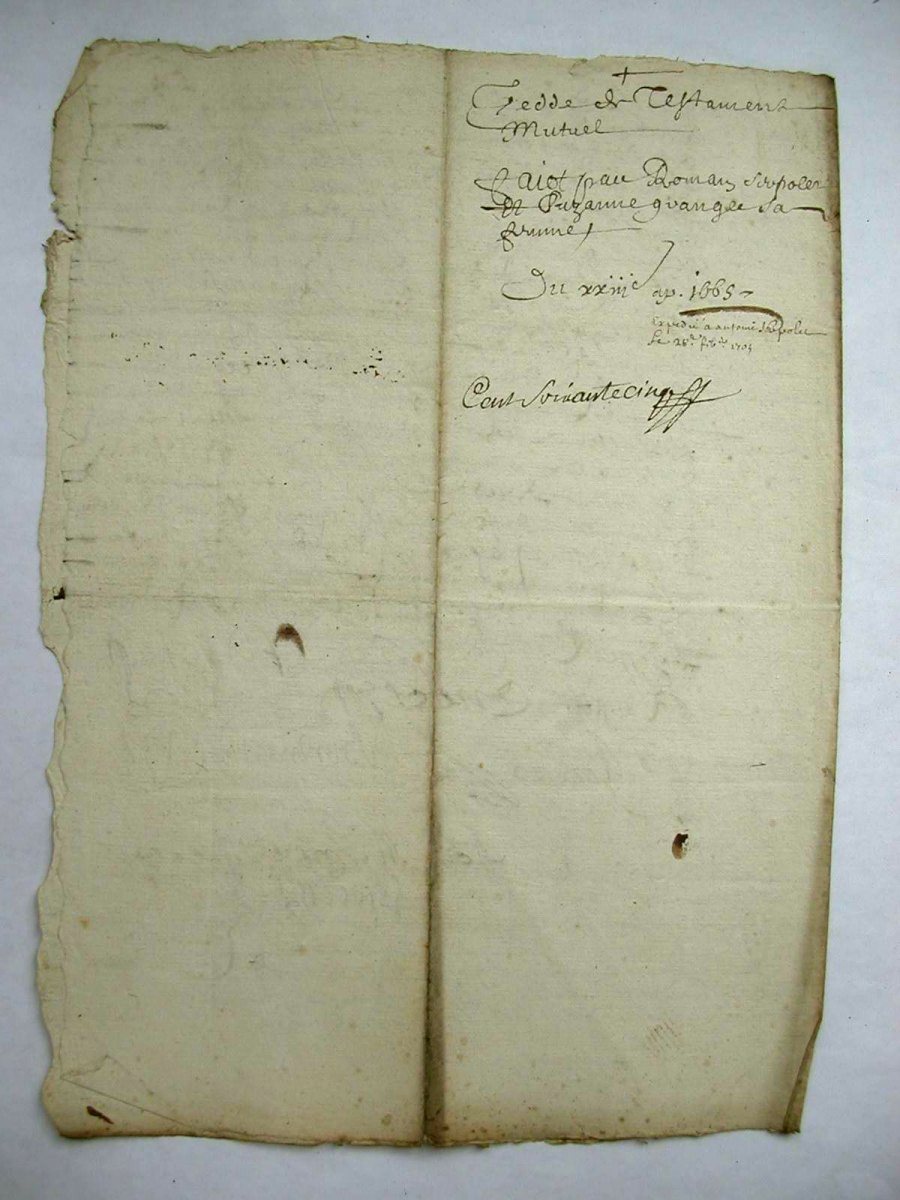 Cedde de Testament
Mutuel
faict par Romain
et Suzanne grangee sa
femme
Du xxiiie ap. 1665
Expedié a antoine
le 28e feb 1704
Cent Soixantecinq